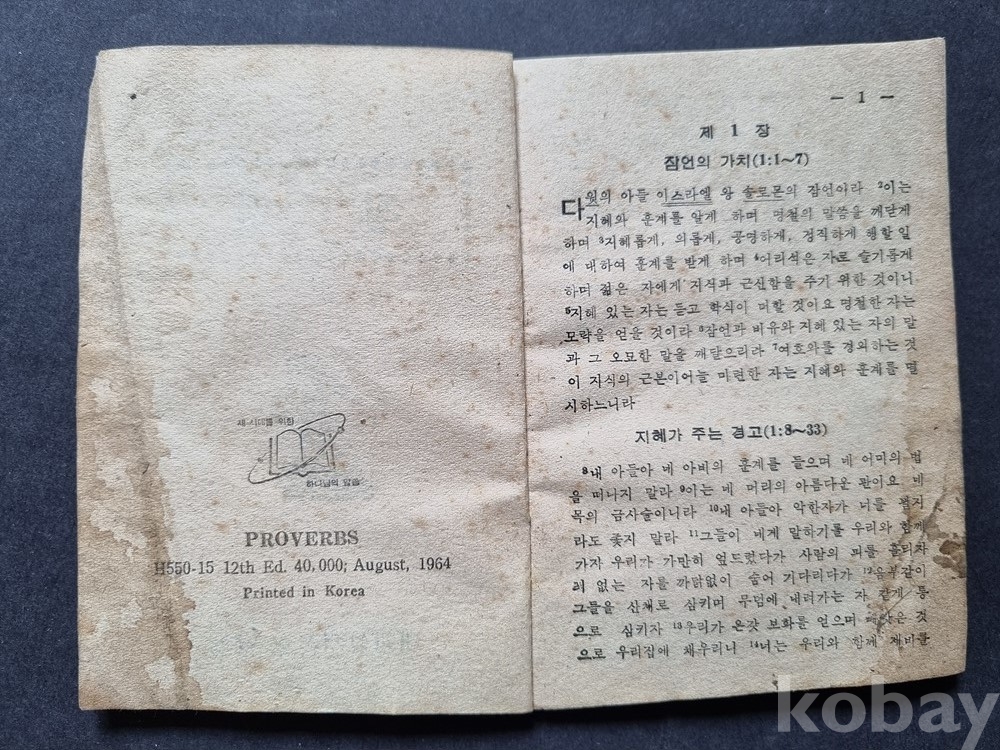 새·시대를 위한
하나님의 말씀
PROVERBS
H550-15 12th Ed. 40,000; August, 1964
Printed in Korea
— 1 —
제 1 장
잠언의 가치(1:1~7)
다윗의 아들 이스라엘 왕 솔로몬의 잠언이라 ²이는
지혜와 훈계를 알게 하며 명철의 말씀을 깨닫게
하며 ³지혜롭게, 의롭게, 공평하게, 정직하게 행할 일
에 대하여 훈계를 받게 하며 ⁴어리석은 자로 슬기롭게
하며 젊은 자에게 지식과 근신함을 주기 위한 것이니
⁵지혜 있는 자는 듣고 학식이 더할 것이요 명철한 자는
모략을 얻을 것이라 ⁶잠언과 비유와 지혜 있는 자의 말
과 그 오묘한 말을 깨달으리라 ⁷여호와를 경외하는 것
이 지식의 근본이어늘 미련한 자는 지혜와 훈계를 멸
시하느니라
지혜가 주는 경고(1:8~33)
⁸내 아들아 네 아비의 훈계를 들으며 네 어미의 법
을 떠나지 말라 ⁹이는 네 머리의 아름다운 관이요 네
목의 금사슬이니라 ¹⁰내 아들아 악한자가 너를 꾈지
라도 좇지 말라 ¹¹그들이 네게 말하기를 우리와 함께
가자 우리가 가만히 엎드렸다가 사람의 피를 흘리자
죄 없는 자를 까닭없이 숨어 기다리다가 ¹²음부같이
그들을 산채로 삼키며 무덤에 내려가는 자 같게 통
으로 삼키자 ¹³우리가 온갖 보화를 얻으며 것
으로 우리집에 채우리니 ¹⁴너는 우리와 함께 제비를
kobay